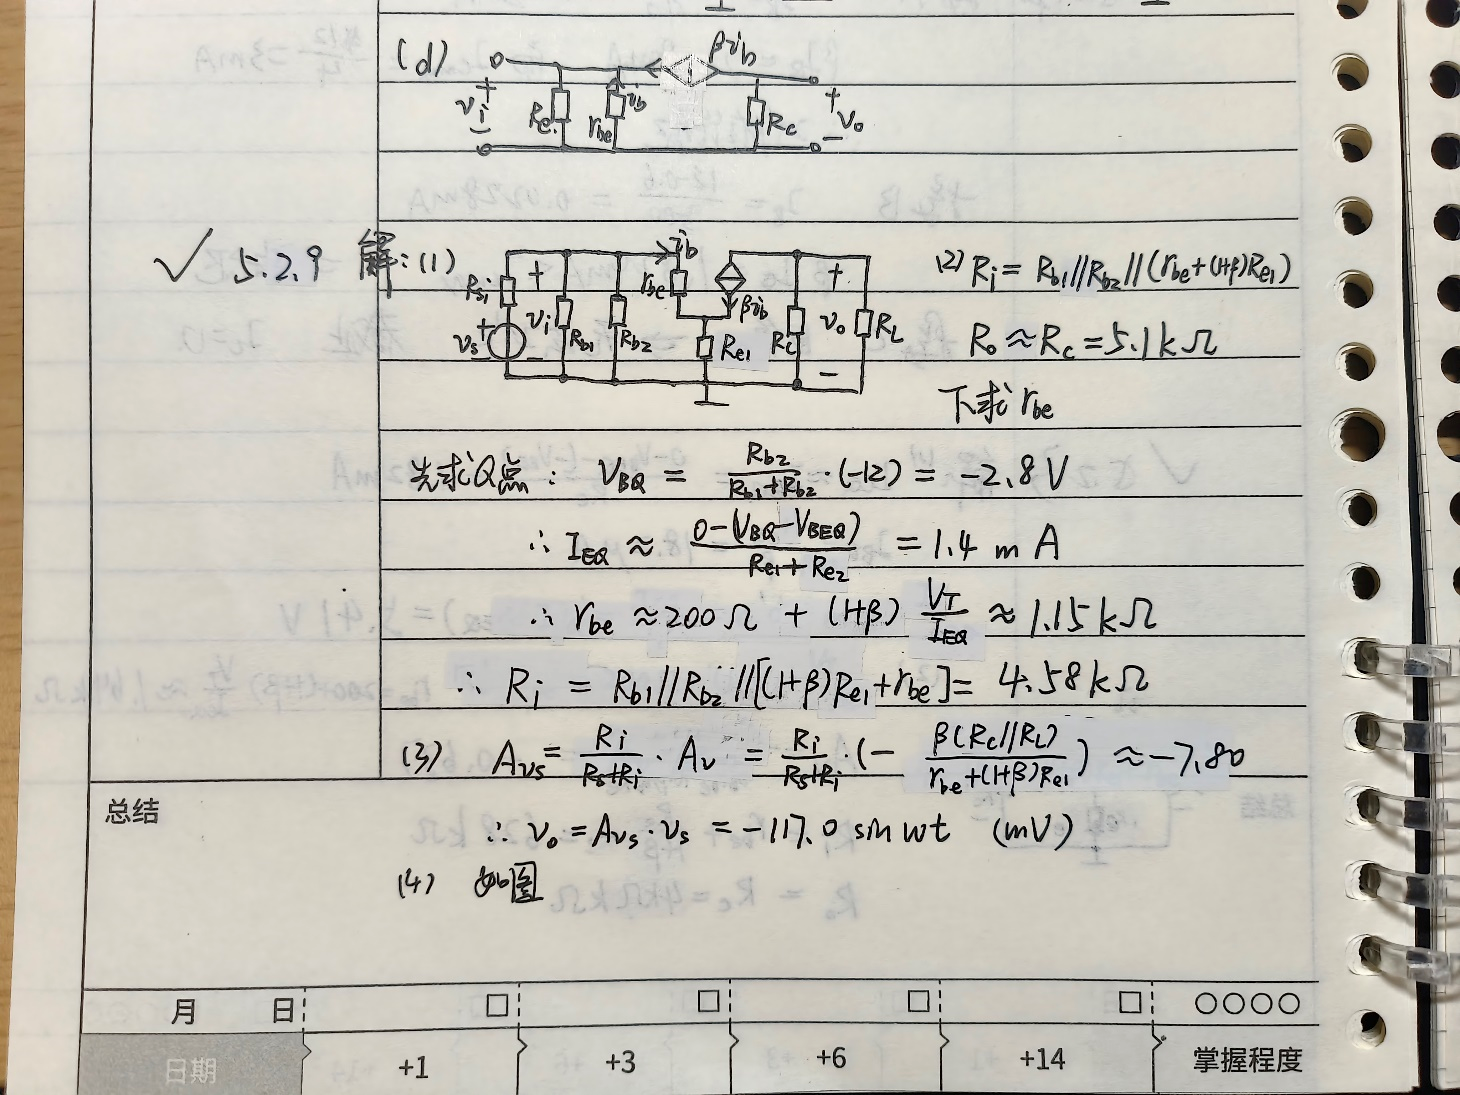 (d) βib
+ vi − Re rbe ib Rc + vo −
✓ 5.2.9 解:(1) ib (2) Ri = Rb1//Rb2//(rbe+(1+β)Re1)
Rsi + vi − Rb1 Rb2 rbe βib Re1 Rc + vo − RL
vs + −
Ro ≈ Rc = 5.1kΩ
下求 rbe
先求Q点: VBQ = Rb2/(Rb1+Rb2) · (-12) = -2.8V
∴ IEQ ≈ 0-(VBQ-VBEQ)/(Re1+Re2) = 1.4 mA
∴ rbe ≈ 200Ω + (1+β) VT/IEQ ≈ 1.15kΩ
∴ Ri = Rb1//Rb2//[(1+β)Re1+rbe] = 4.58kΩ
(3) Avs = Ri/(Rs+Ri) · Av = Ri/(Rs+Ri) · (- β(Rc//RL)/(rbe+(1+β)Re1)) ≈ -7.80
总结
∴ vo = Avs · vs = -117.0 sin wt (mV)
(4) 如图
月 日 □ □ □ □ ○○○○
日期 +1 +3 +6 +14 掌握程度